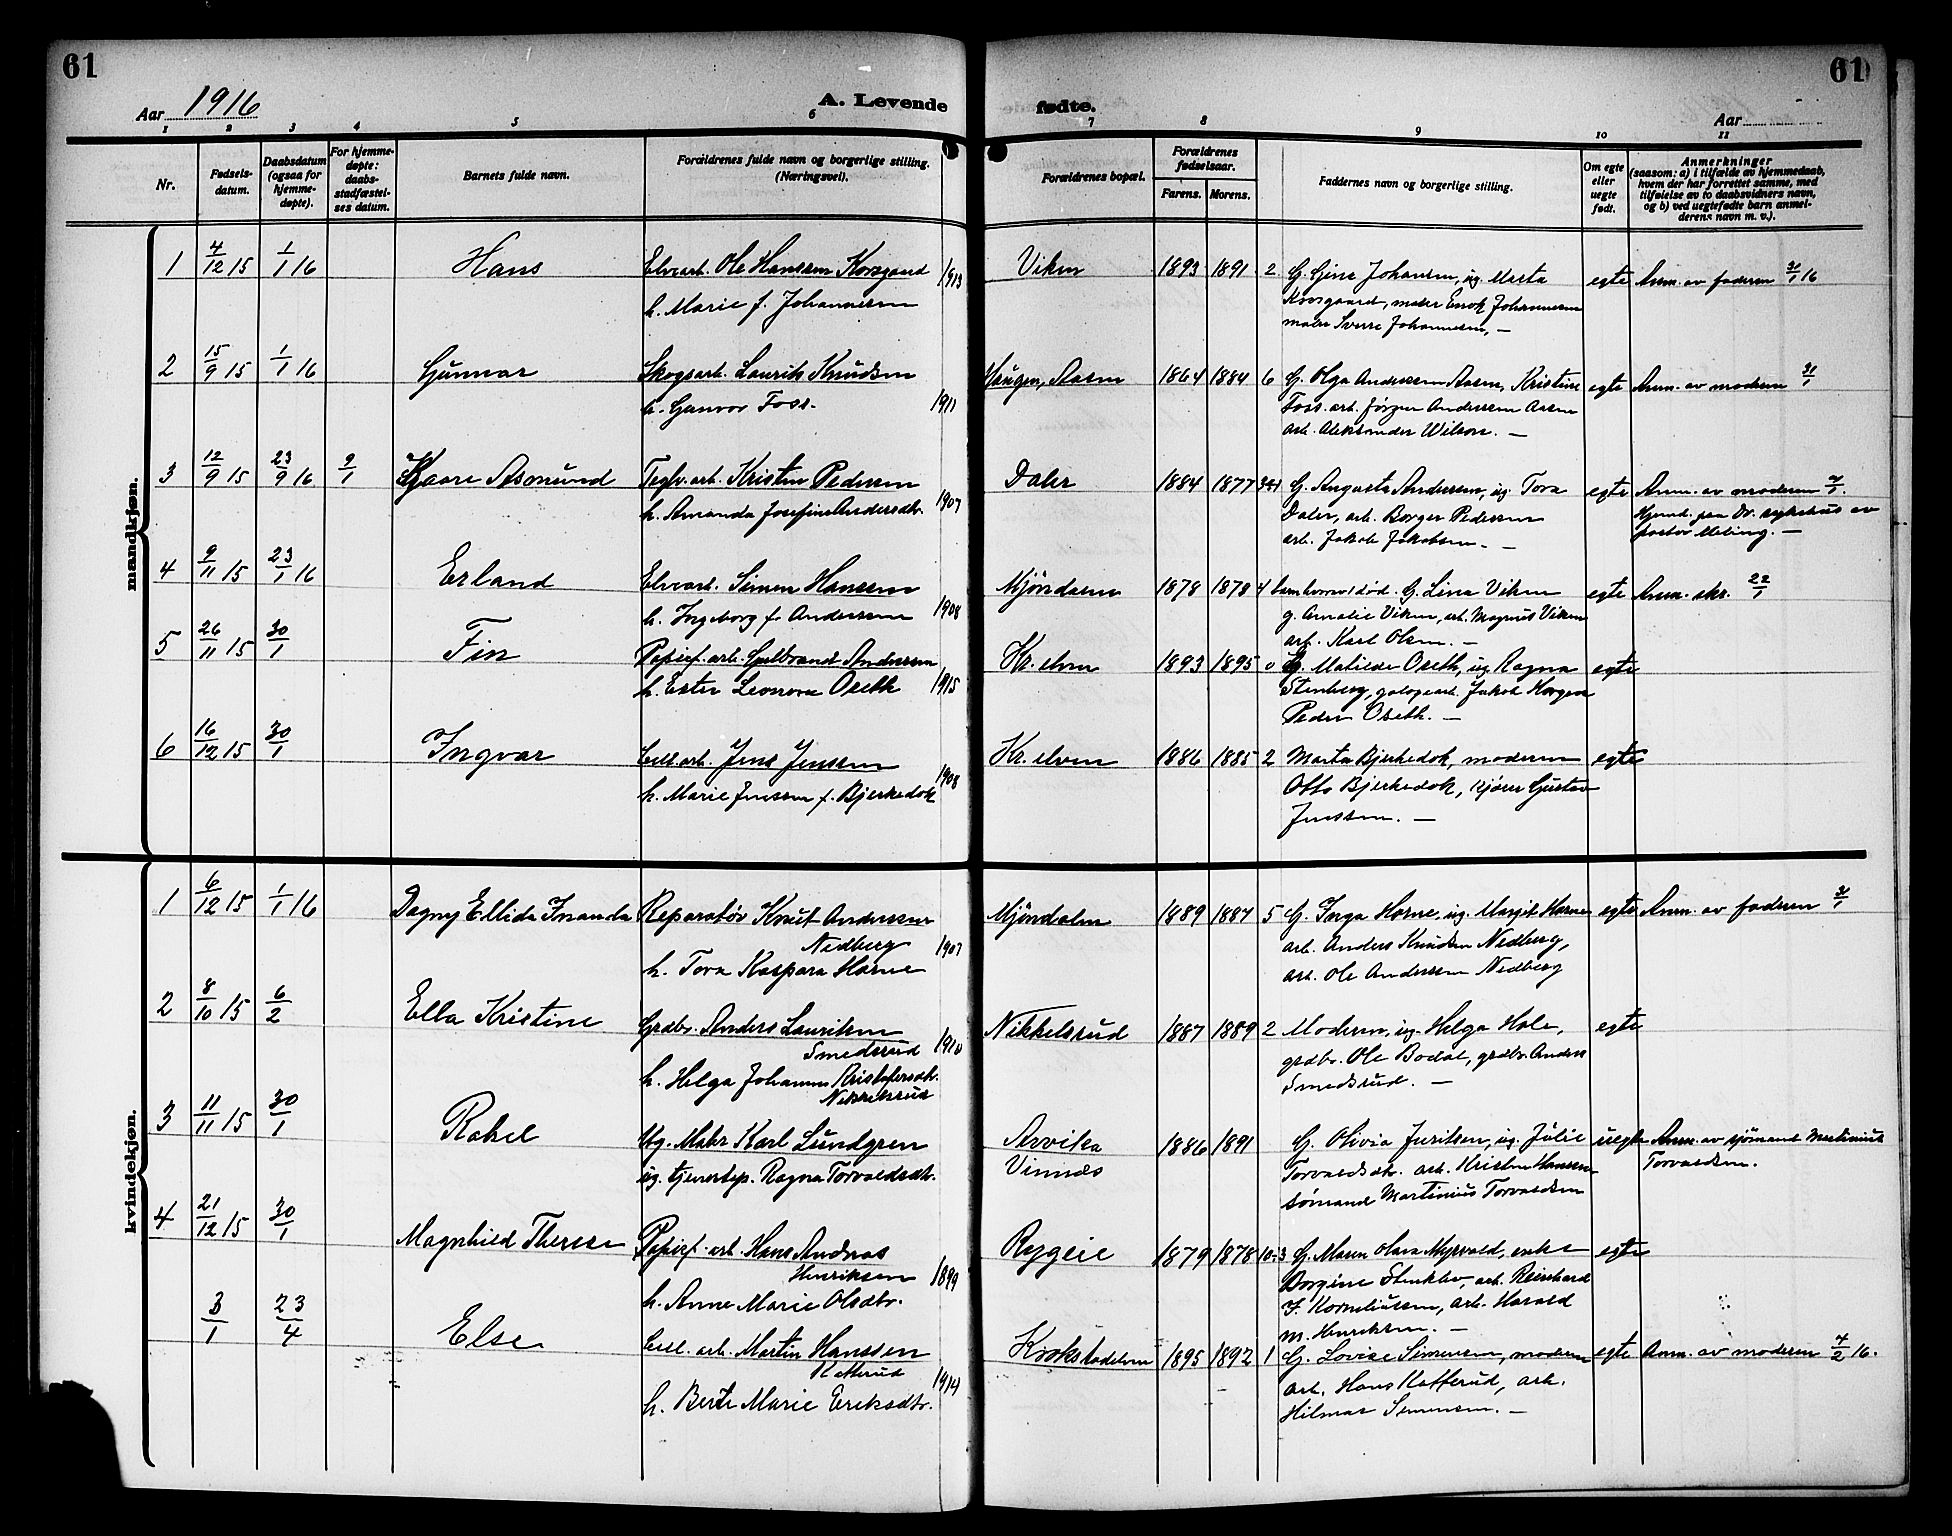 61
61
Aar 1916
A. Levende
fødte.
Aar
1 2 3 4 5 6 7 8 9 10 11
Nr.
Fødsels-
datum.
Daabsdatum
(ogsaa for
hjemme-
døpte).
For hjemme-
døpte:
daabs-
stadfæstel-
ses datum.
Barnets fulde navn.
Forældrenes fulde navn og borgerlige stilling.
(Næringsvei).
Forældrenes bopæl.
Forældrenes
fødselsaar.
Farens. Morens.
Faddernes navn og borgerlige stilling.
Om egte
eller
uegte
født.
Anmerkninger
(saasom: a) i tilfælde av hjemmedaab,
hvem der har forrettet samme, med
tilføielse av to daabsvidners navn,
og b) ved uegtefødte barn anmel-
derens navn m. v.).
mandkjøn.
1 4/12 15 1/1 16 Hans Elvearb. Ole Hanssen Korsgaard 1913 Viken 1893 1891 2 G. Gina Johansen, ug. Marta egte Anm. av faderen 3/1 16
h. Marie f. Johannesen
Korsgaard, maler Johannesen
maler Sverre Johannesen, —
2 15/9 15 1/1 16 Gunnar Skogsarb. Laurits Knudsen 1911 Haugen, Aasen 1864 1884 6 G. Olga Anderssen Aasen, Kristine egte Anm. av moderen 3/1
h. Gunvor Foss.
Foss. arb. Jørgen Anderssen Aasen
arb. Aleksander Wilson. —
3 12/9 15 23/9 16 9/1 Kaare Asmund Teglv. arb. Kristen Pedersen 1907 Daler 1884 1877 3+1 G. Augusta Andersen, ug. Tora egte Anm. av moderen 7/1.
h. Amanda Josefine Andersdtr.
Daler, arb. Borger Pedersen
arb. Jakob Jakobsen. —
Hjemd. paa Dr. sykehus av
pastor Meling. —
4 9/11 15 23/1 16 Erland Elvearb. Simen Hansen 1908 Mjøndalen 1878 1878 4 barn hvorav 1 død. G. Lina Viken egte Anm. skr. 22/1
h. Ingeborg f. Andersen
g. Amalie Viken, arb. Magnus Viken
arb. Karl Olsen. —
5 26/11 15 30/1 Fin Papirf. arb. Gulbrand Andersen 1915 Kr. elven 1893 1895 0 G. Matilde Oseth, ug. Ragna egte
h. Ester Leonora Oseth
Stenberg, arb. Jakob Horgen
Peder Oseth. —
6 16/12 15 30/1 Ingvar Cell. arb. Jens Jenssen 1908 Kr. elven 1886 1885 2 Marta Bjerkedok, moderen egte
h. Marie Jenssen f. Bjerkedok
Otto Bjerkedok, kjører Gustav
Jenssen. —
kvindekjøn.
1 6/12 15 1/1 16 Dagny Ellida Inanda Reparatør Knut Anderssen 1907 Mjøndalen 1889 1887 5 G. Inga Horne, ug. Margit Horne egte Anm. av faderen 3/1
Nedberg
h. Tora Kaspara Horne
arb. Anders Knudsen Nedberg,
arb. Ole Anderssen Nedberg
2 8/10 15 6/2 Ella Kristine Grdbr. Anders Lauritsen 1910 Nikkelsrud 1887 1889 2 Moderen, ug. Helga Hole, egte
Smedsrud
h. Helga Johanne Kristofersdtr.
Nikkelsrud
grdbr. Ole Bodal, grdbr. Anders
Smedsrud. —
3 11/11 15 30/1 Rakel Ug. Maler Karl Lundgren Arvika 1886 1891 G. Olivia Juritsen, ug. Julie uegte Anm. av sjömand Martinius
ug. tjenestep. Ragna Torvaldsdtr. Vinnæs
Torvaldsdtr. arb. Kristen Hansen
sømand Martinius Torvaldsen
Torvaldsen.
4 21/12 15 30/1 Magnhild Therese Papirf. arb. Hans Andreas 1899 Rygeie 1879 1878 10÷3 G. Maren Olava Myrvold, enke egte
Henriksen
h. Anne Marie Olsdtr.
Borgine Stenklev, arb. Reinhard
F. Korneliussen, arb. Harald
M. Henriksen. —
3/1 23/4 Else Cell. arb. Martin Hanssen 1914 Krokstadelven 1895 1892 1 G. Lovise Simensen, moderen egte Anm. av moderen 4/2 16.
Katterud
h. Berte Marie Eriksdtr.
arb. Hans Katterud, arb.
Hilmar Simensen. —